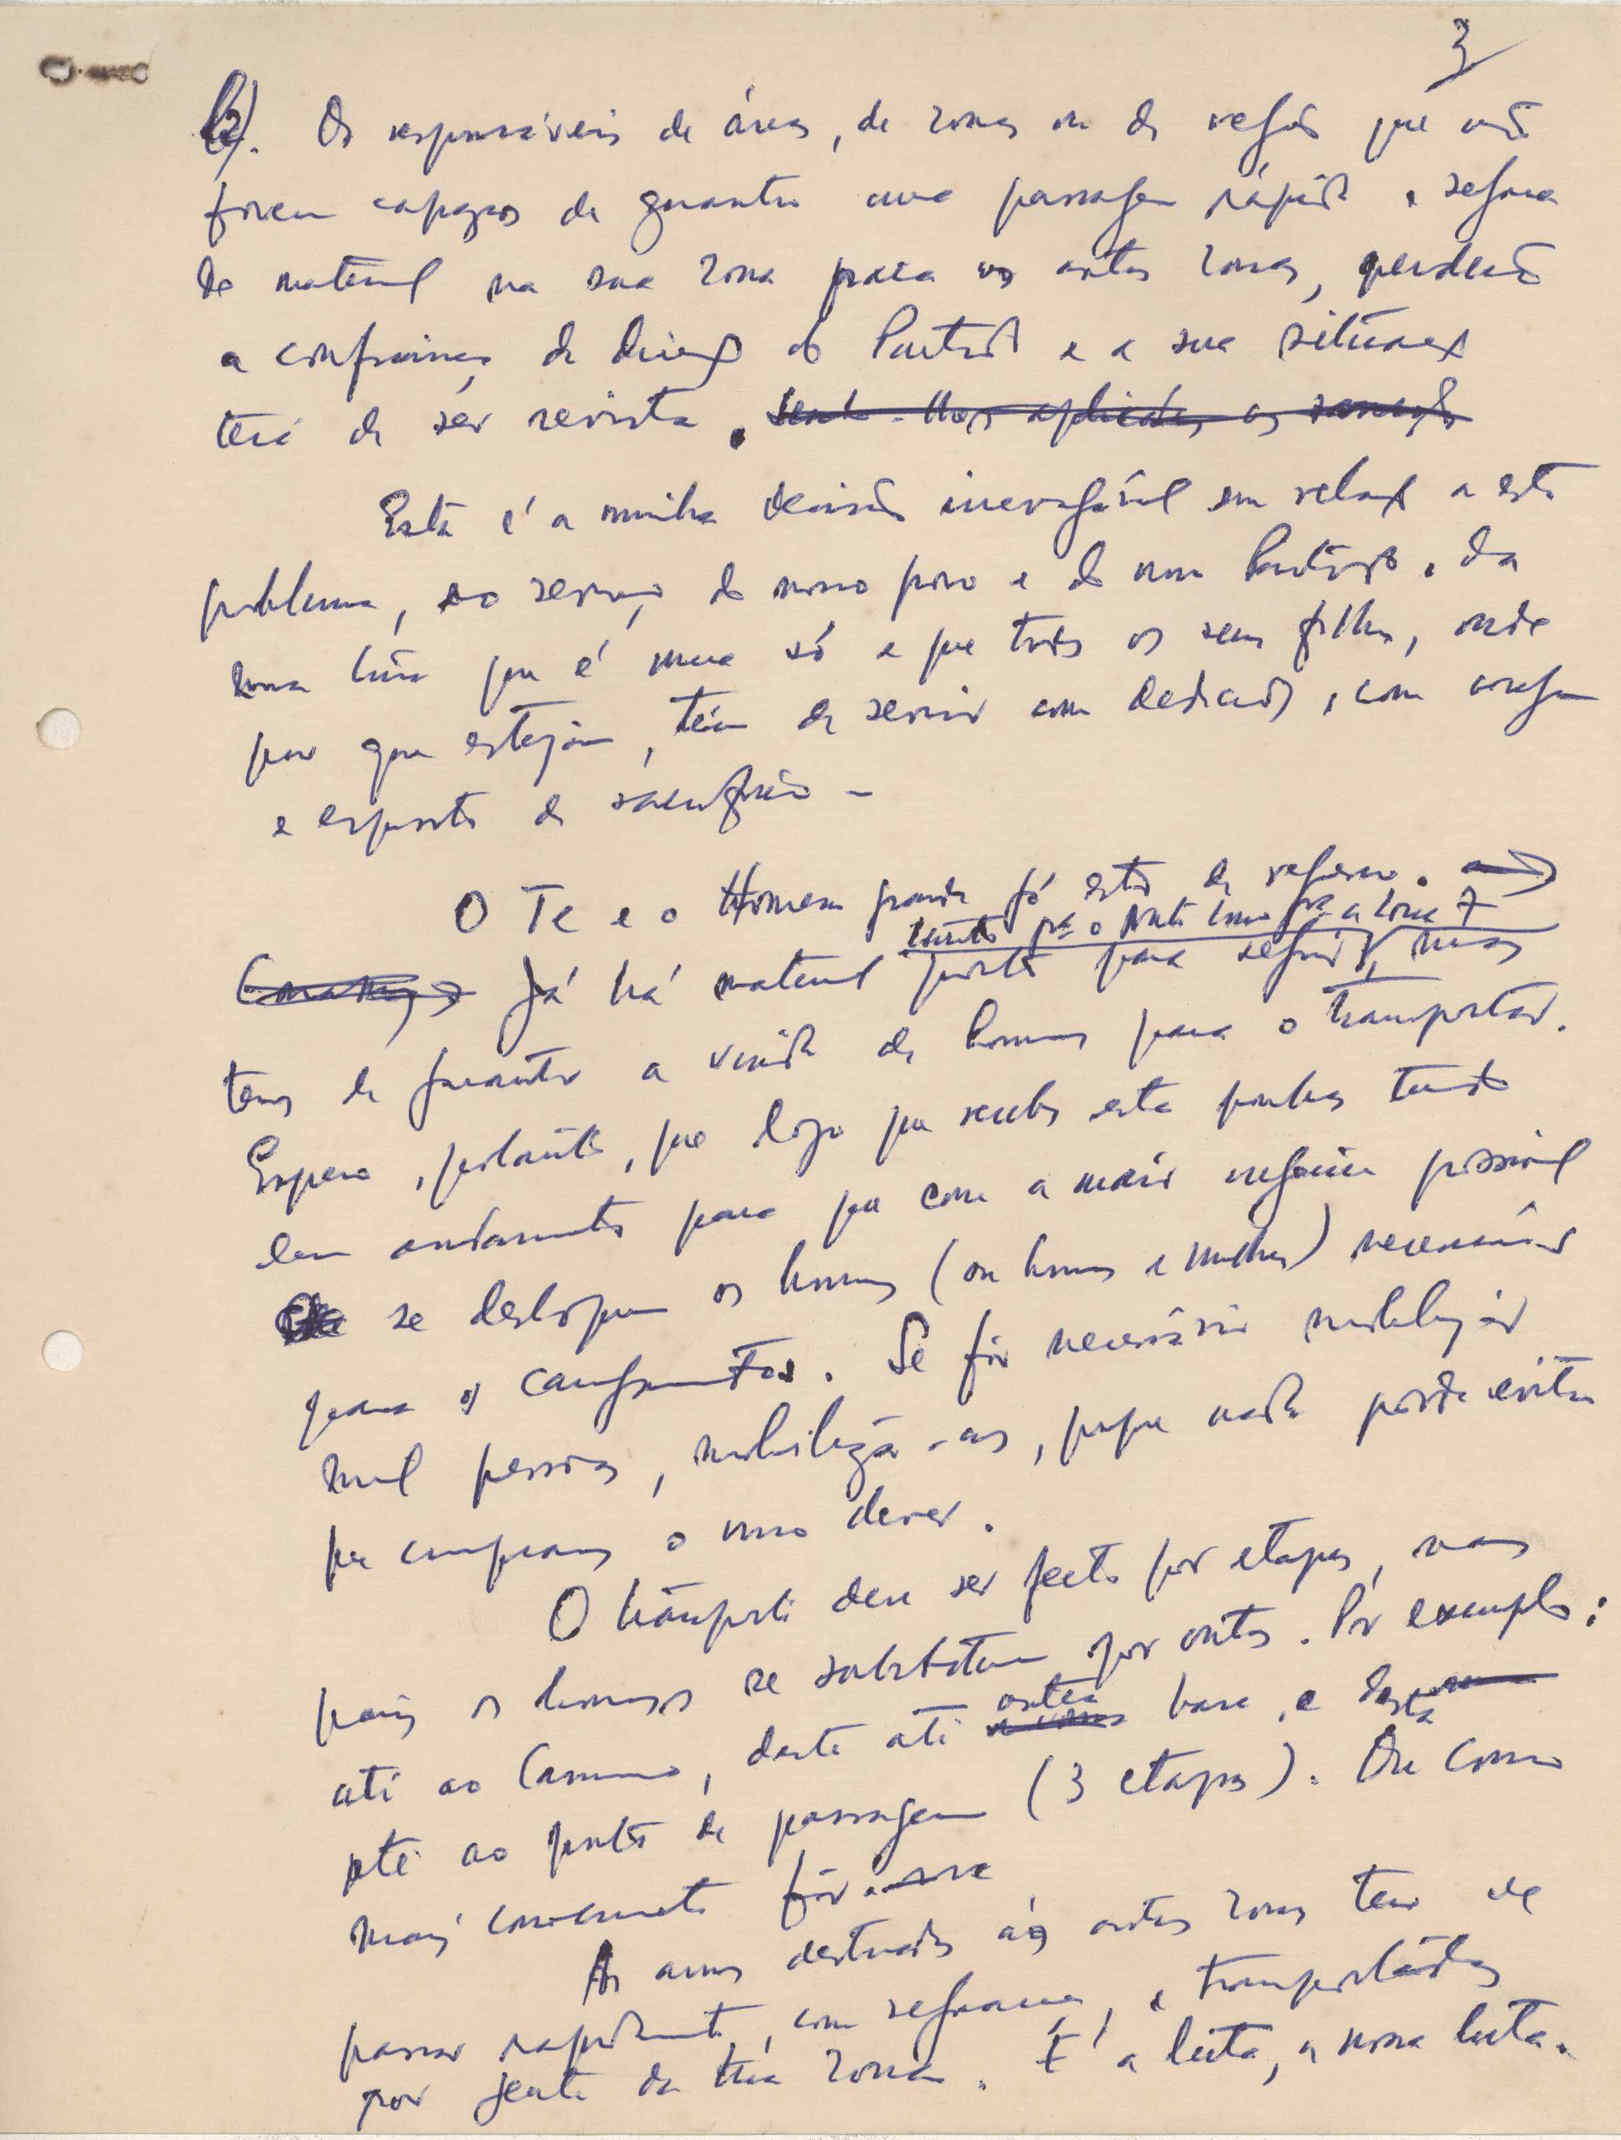 3
b). Os responsáveis de áreas, de zonas ou de região que não
forem capazes de garantir uma passagem rápida e segura
de material na sua zona para as outras zonas, perderão
a confiança da direcção do Partido e a sua situação
terá de ser revista.
Esta é a minha decisão irrevogável em relação a este
problema, ao serviço do nosso povo e do nosso Partido, da
nossa luta que é uma só e que todos os seus filhos, onde
quer que estejam, têm de servir com dedicação, com coragem
e espírito de sacrifício -
O Te e o Homem grande já estão de regresso.
tanto pª o Norte como pª a zona 7
Já há material pronto para seguir, mas
temos de garantir a vinda de homens para o transportar.
Espero, portanto, que logo que recebas esta ponhas tudo
em andamento para que com a maior urgência possível
se desloquem os homens (ou homens e mulheres) necessários
para os carregamentos. Se fôr necessário mobilizar
mil pessoas, mobilizá-as, porque nada pode evitar
que cumpramos o nosso dever.
O transporte deve ser feito por etapas, nas
quais os homens se substituem por outros. Por exemplo:
até ao Camino, deste até outra base, e desta
até ao ponto de passagem (3 etapas). Ou como
mais conveniente fôr.
As armas destinadas às outras zonas têm de
passar rapidamente, com segurança, e transportadas
por gente da tua zona. É a luta, a nossa luta.